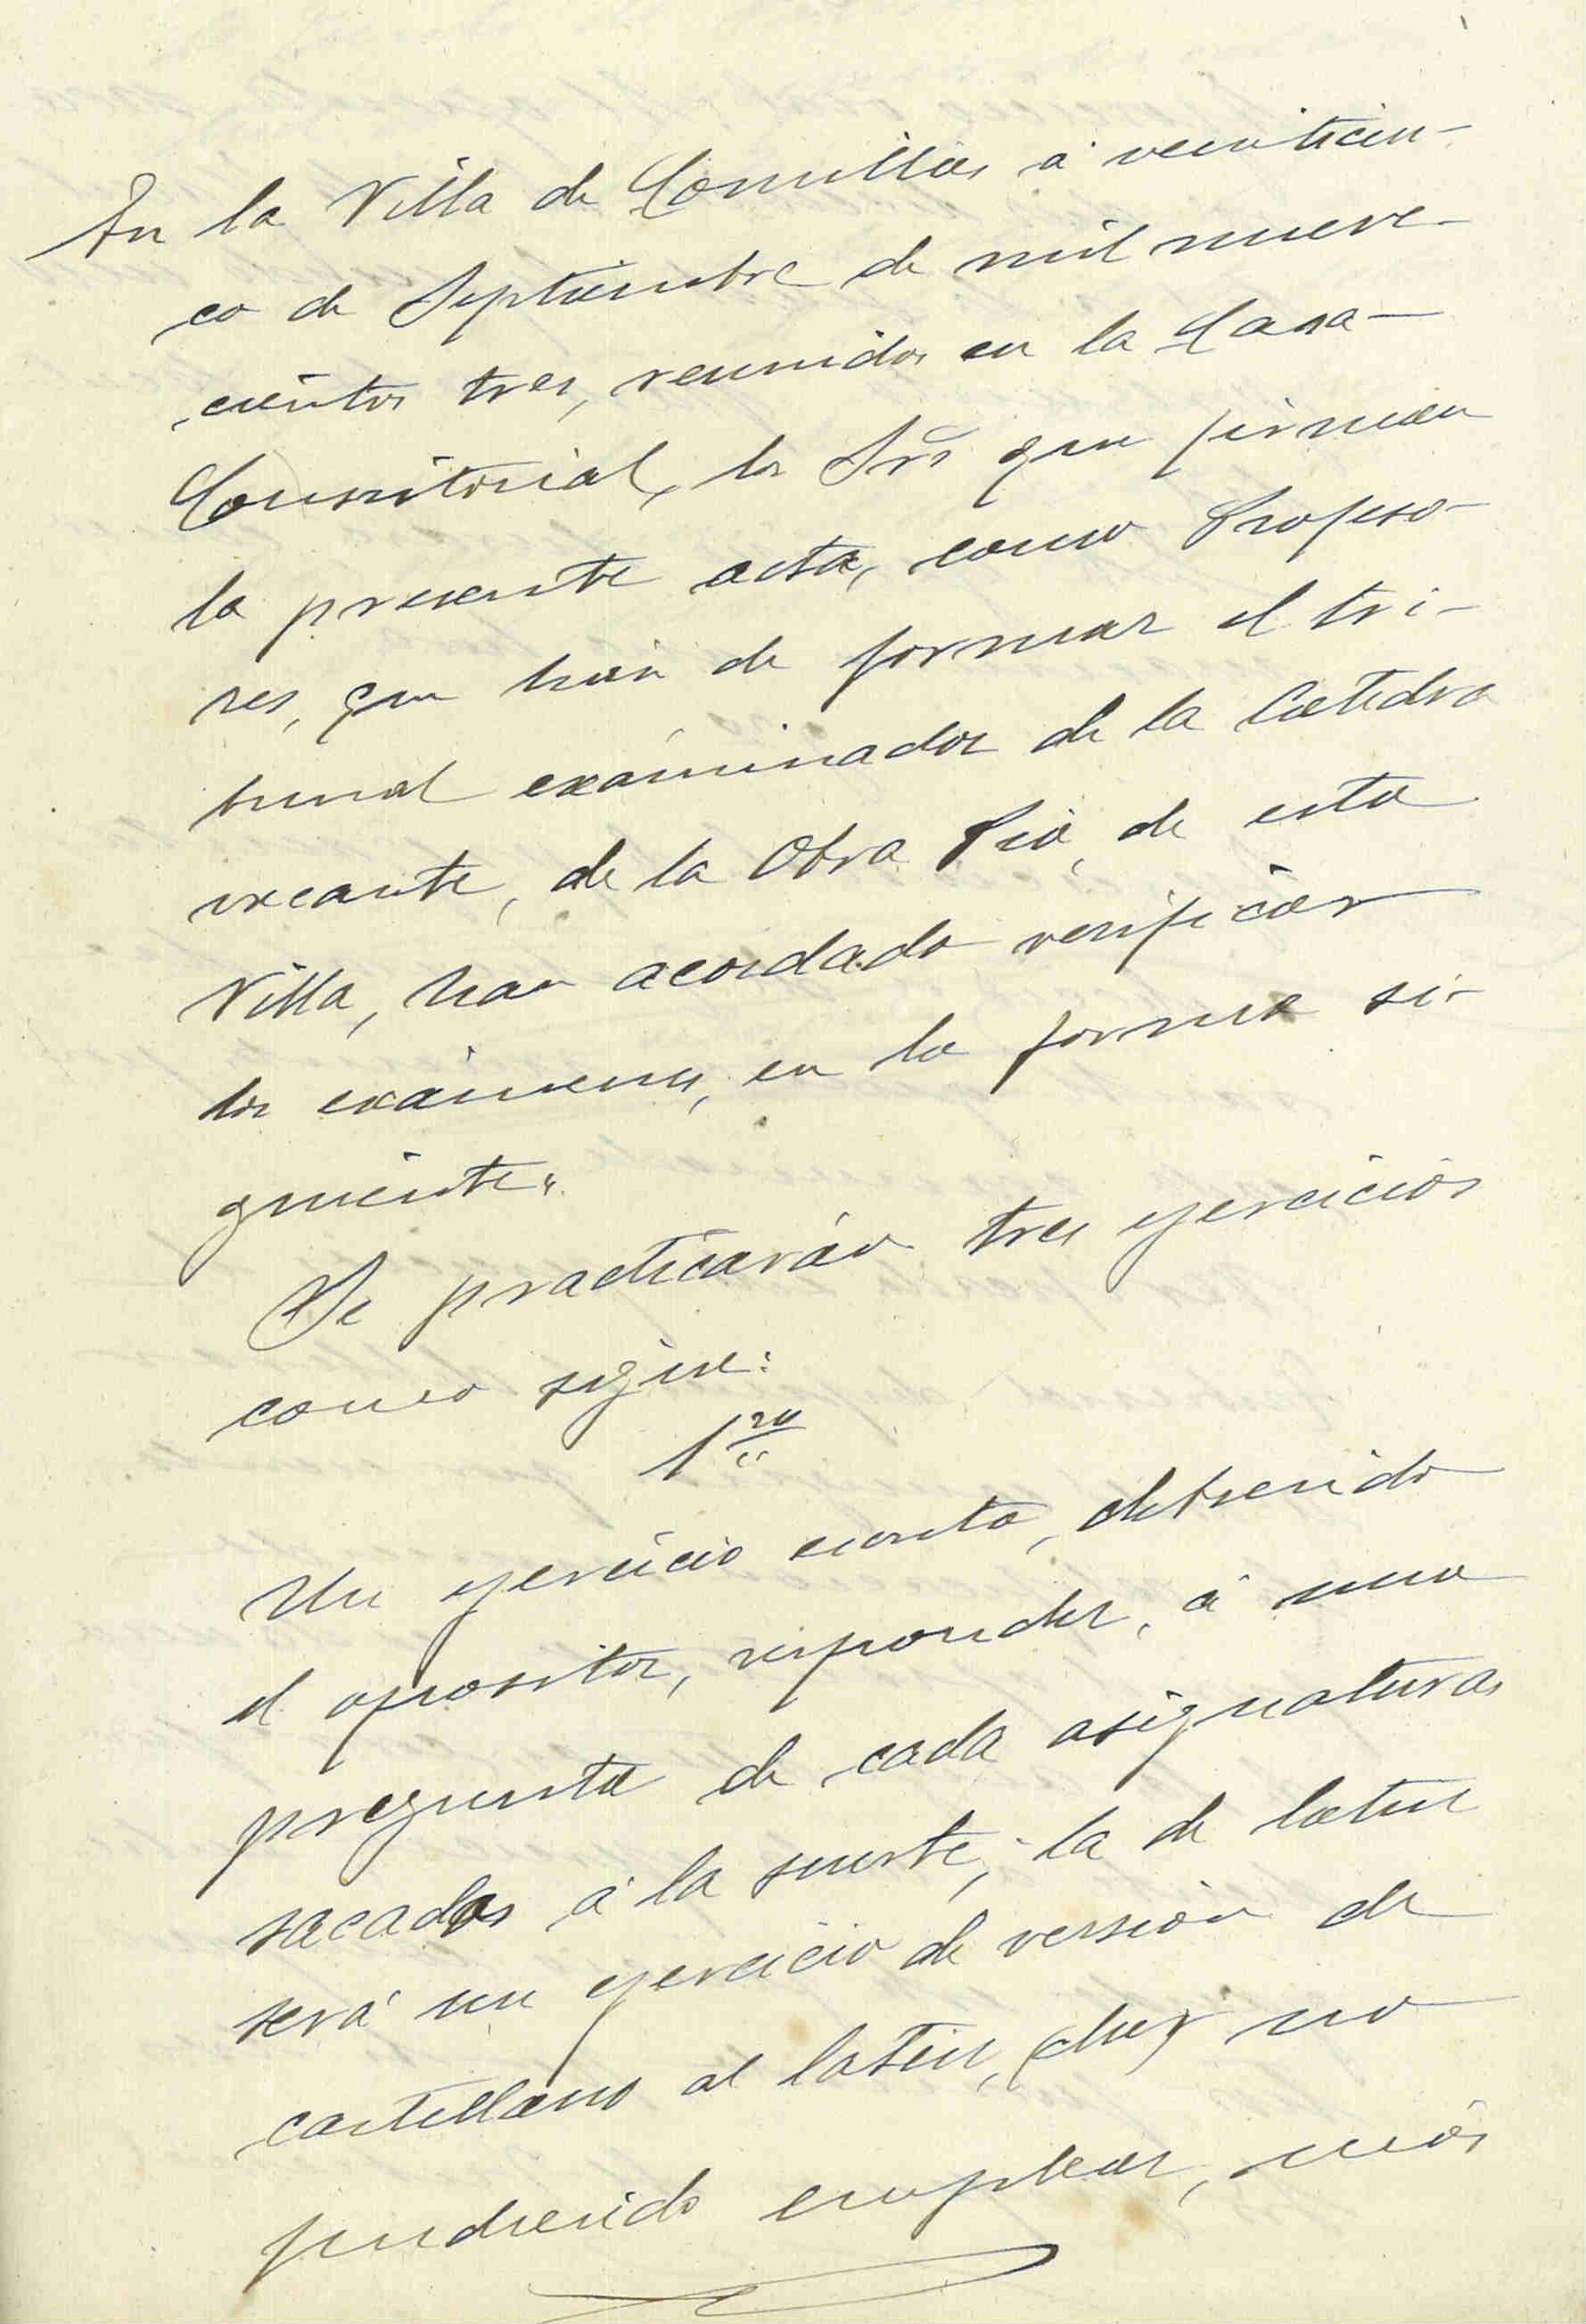 En la Villa de Comillas á veinticin-
co de Septiembre de mil nueve-
cientos tres, reunidos en la Casa-
Consistorial, los Srs que firman
la presente acta, como Profeso-
res, que han de formar el tri-
bunal examinador de la Catedra
vacante, de la Obra Pia, de esta
Villa, han acordado verificar
los exámenes, en la forma si-
guiente.
Se practicarán tres ejercicios
como sigue:
1ro
Un ejercicio escrito, debiendo
el opositor, responder, á una
pregunta de cada asignatura,
sacadas á la suerte; la de latin
será un ejercicio de versión de
castellano al latin, no
pudiendo emplear, más